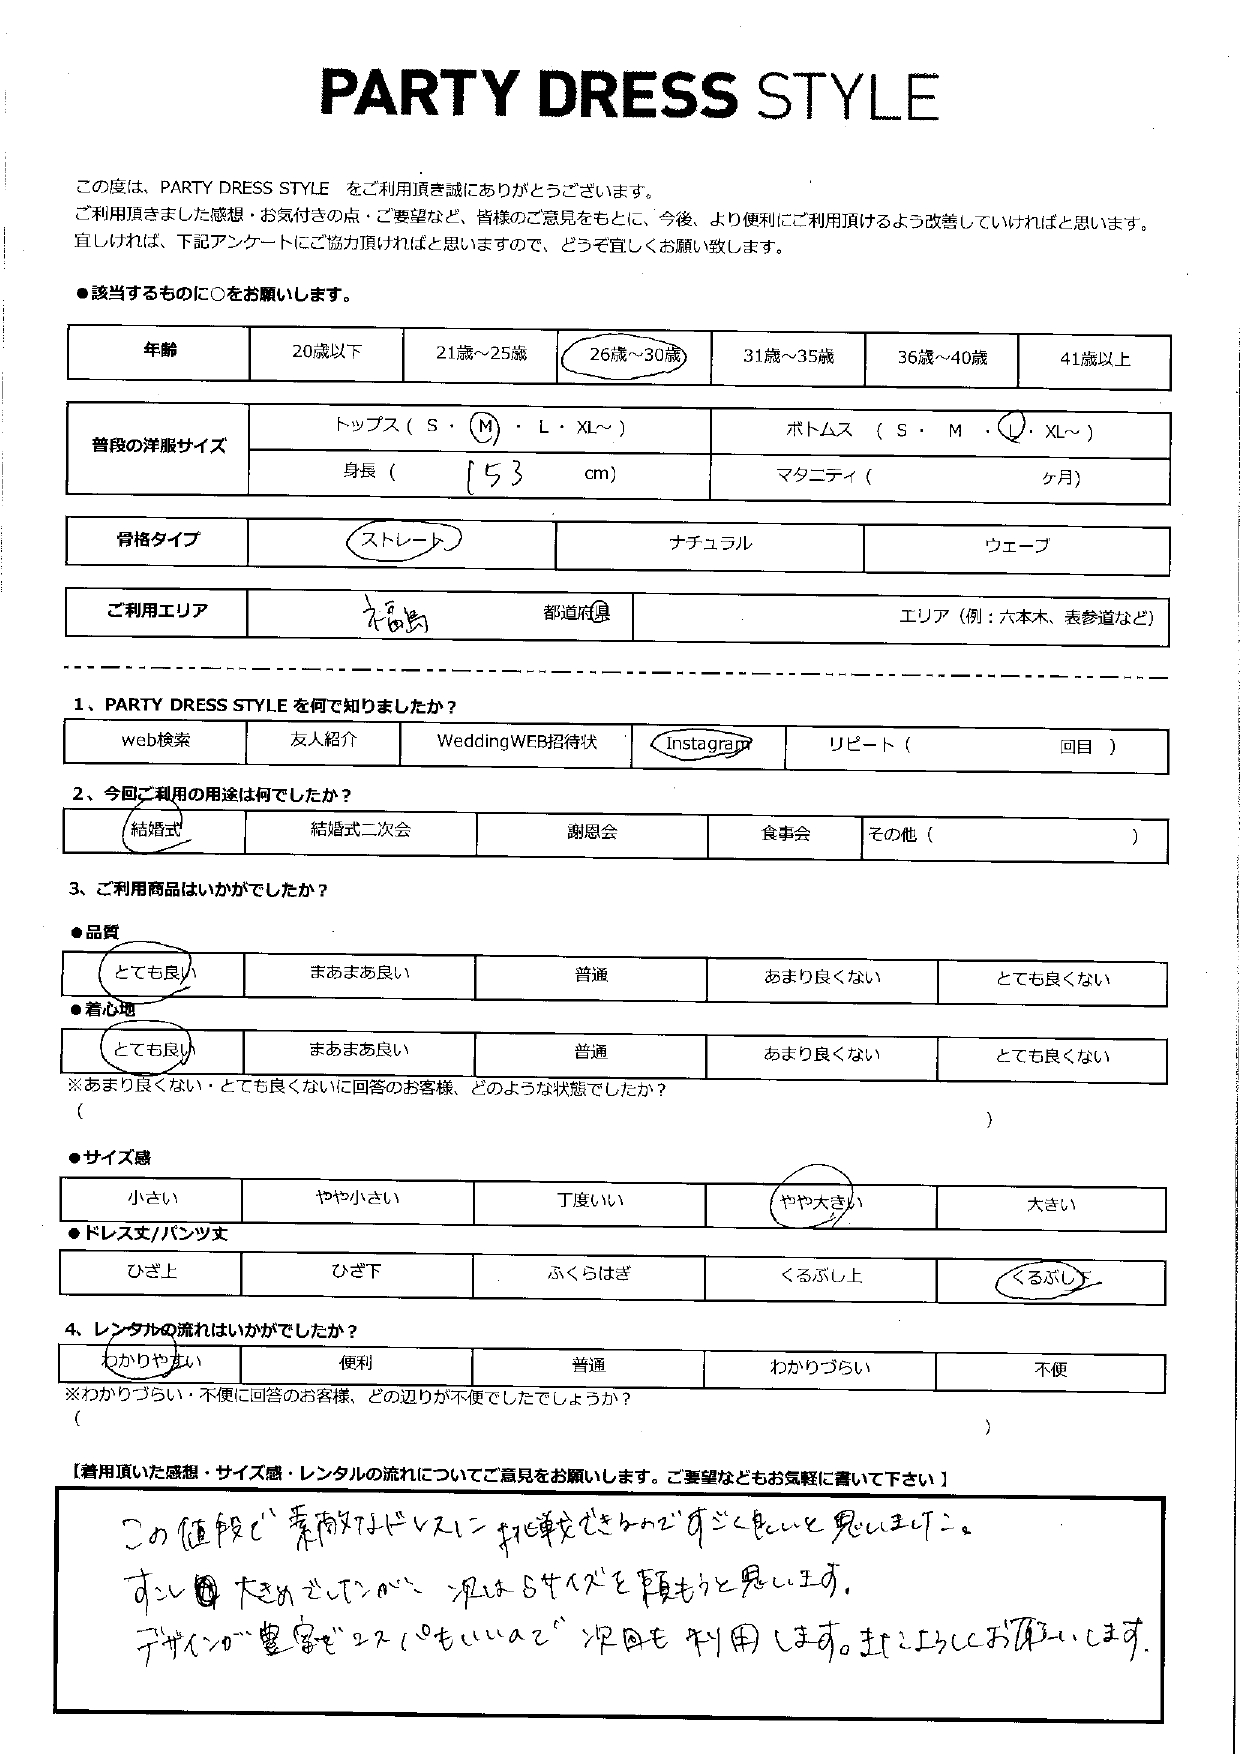 PARTY DRESS STYLE
この度は、PARTY DRESS STYLE をご利用頂き誠にありがとうございます。
ご利用頂きました感想・お気付きの点・ご要望など、皆様のご意見をもとに、今後、より便利にご利用頂けるよう改善していければと思います。
宜しければ、下記アンケートにご協力頂ければと思いますので、どうぞ宜しくお願い致します。
●該当するものに○をお願いします。
年齢 20歳以下 21歳～25歳 26歳～30歳 31歳～35歳 36歳～40歳 41歳以上
普段の洋服サイズ
トップス ( S ・ M ・ L ・ XL～ ) ボトムス ( S ・ M ・ L ・ XL～ )
身長 ( 153 cm) マタニティ ( ケ月)
骨格タイプ ストレート ナチュラル ウェーブ
ご利用エリア 福島 都道府県 エリア（例：六本木、表参道など）
1、PARTY DRESS STYLE を何で知りましたか？
web検索 友人紹介 WeddingWEB招待状 Instagram リピート ( 回目 )
2、今回ご利用の用途は何でしたか？
結婚式 結婚式二次会 謝恩会 食事会 その他 ( )
3、ご利用商品はいかがでしたか？
●品質
とても良い まあまあ良い 普通 あまり良くない とても良くない
●着心地
とても良い まあまあ良い 普通 あまり良くない とても良くない
※あまり良くない・とても良くないに回答のお客様、どのような状態でしたか？
( )
●サイズ感
小さい やや小さい 丁度いい やや大きい 大きい
●ドレス丈/パンツ丈
ひざ上 ひざ下 ふくらはぎ くるぶし上 くるぶし下
4、レンタルの流れはいかがでしたか？
わかりやすい 便利 普通 わかりづらい 不便
※わかりづらい・不便に回答のお客様、どの辺りが不便でしたでしょうか？
( )
【着用頂いた感想・サイズ感・レンタルの流れについてご意見をお願いします。ご要望などもお気軽に書いて下さい】
この値段で素敵なドレスに挑戦できるのですごく良いと思いました。
すこし大きめでしたが、次はSサイズを頼もうと思います。
デザインが豊富でコスパもいいので次回も利用します。またよろしくお願いします.